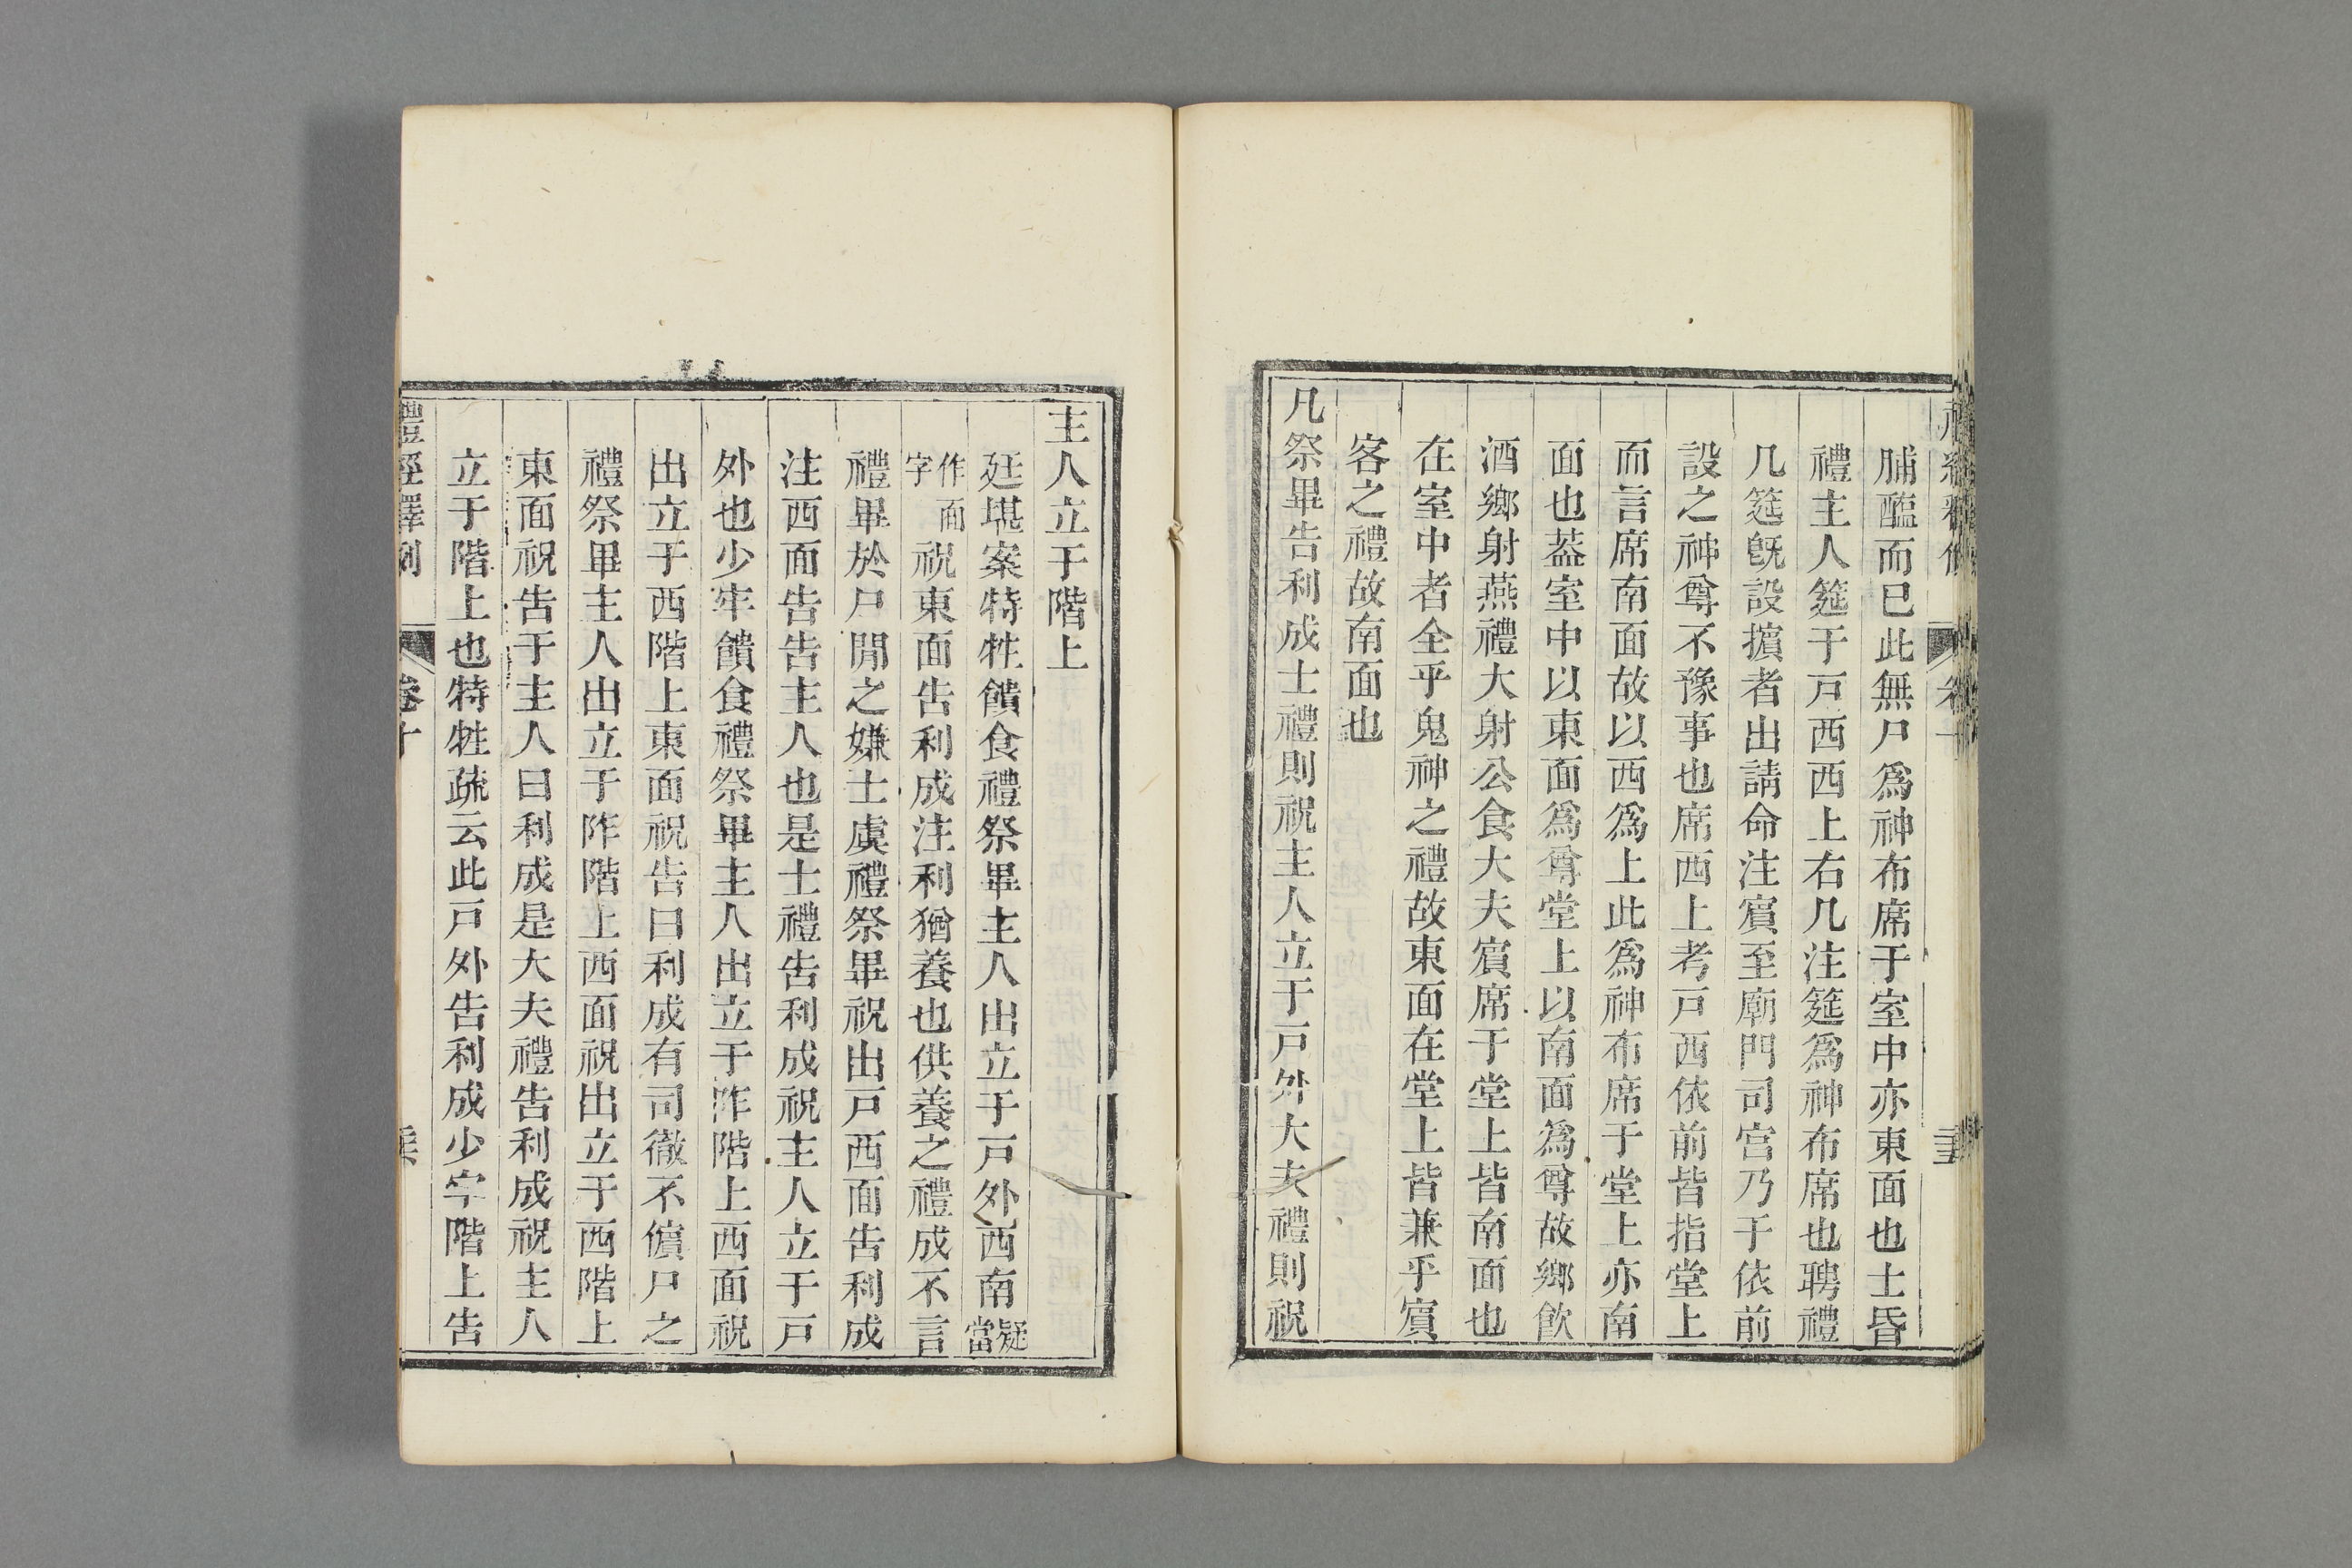 脯醢而已此無尸爲神布席于室中亦東面也士昏
禮主人筵于戸西西上右几注筵爲神布席也聘禮
几筵旣設擯者出請命注賔至廟門司宫乃于依前
設之神尊不豫事也席西上考戸西依前皆指堂上
而言席南面故以西爲上此爲神布席于堂上亦南
面也葢室中以東面爲尊堂上以南面爲尊故鄉飮
酒鄉射燕禮大射公食大夫賔席于堂上皆南面也
在室中者全乎鬼神之禮故東面在堂上皆兼乎賔
客之禮故南面也
凡祭畢告利成士禮則祝主人立于戸外大夫禮則祝
主人立于階上
廷堪案特牲饋食禮祭畢主人出立于戸外西南疑當
作面字祝東面告利成注利猶養也供養之禮成不言
禮畢於尸閒之嫌士虞禮祭畢祝出戸西面告利成
注西面告告主人也是士禮告利成祝主人立于戸
外也少牢饋食禮祭畢主人出立于阼階上西面祝
出立于西階上東面祝告曰利成有司徹不儐尸之
禮祭畢主人出立于阼階上西面祝出立于西階上
東面祝告于主人曰利成是大夫禮告利成祝主人
立于階上也特牲疏云此戸外告利成少牢階上告
禮經釋例 卷十